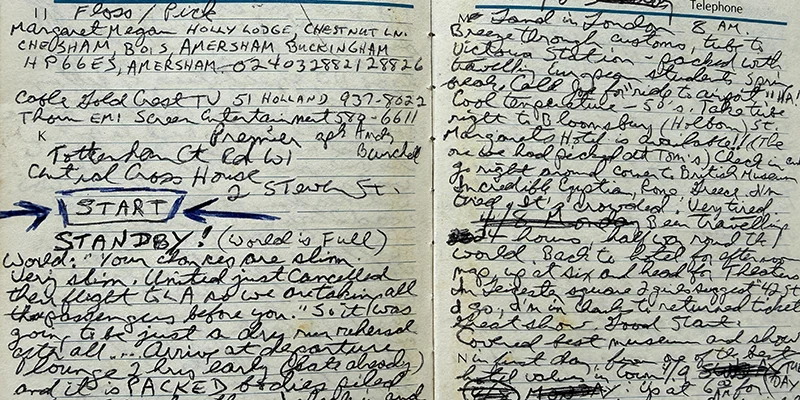 11 Floss / Pick
Margaret Megan HOLLY LODGE, CHESTNUT LN.
CHESHAM, BOIS, AMERSHAM BUCKINGHAM
HP66ES, AMERSHAM
Cable Gold Crest TV 51 HOLLAND 937-8022
Thorn EMI Screen Entertainment 589-6611
K Premier apt Andy
Tottenham Ct Rd W1
Central Cross House
2 Steven St.
START
STANDBY! (World is Full)
World: "Your chances are slim.
Very slim. United just cancelled
their flight to LA so we are taking all
the passengers before you." So it was
going to be just a dry run rehersal
after all... Arrive at departure
lounge 2 hrs early (seats already)
and it is PACKED bodies piled
Telephone
Land in London 8 AM.
Breeze through customs, tube to
Victoria Station - packed with
travelling European students Spring
break. Call for "ride to airport" HA!
Cool temperature - 50's. Take tube
right to Bloomsbury (Holborn) St.
Margarets Hotel is available!! (The
one we had picked at Tom's) Check in and
go right around corner to British Museum
Incredible Egyptian, Rome Greece. I'm
tired & it's crowded. Very tired.
Been travelling
24 hours, half way round the
world. Back to hotel for afternoon
nap, up at six and head for Theaters
In Leicester square 2 girls suggest "42 St."
& go, I'm in thanks to returned ticket
Great show. Good Start.
Covered best museum and show
N in first day, from one of the best
hotel values in town! 4/9
Up at 6 AM for